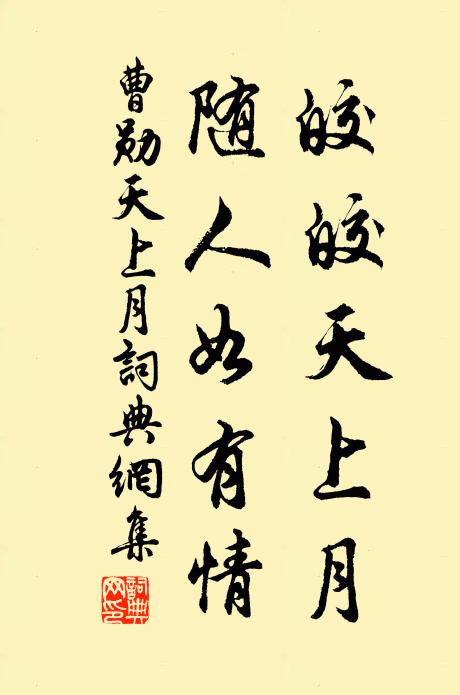 皎皎天上月
随人如有情
曹勛天上月詞典網集
詞典網印